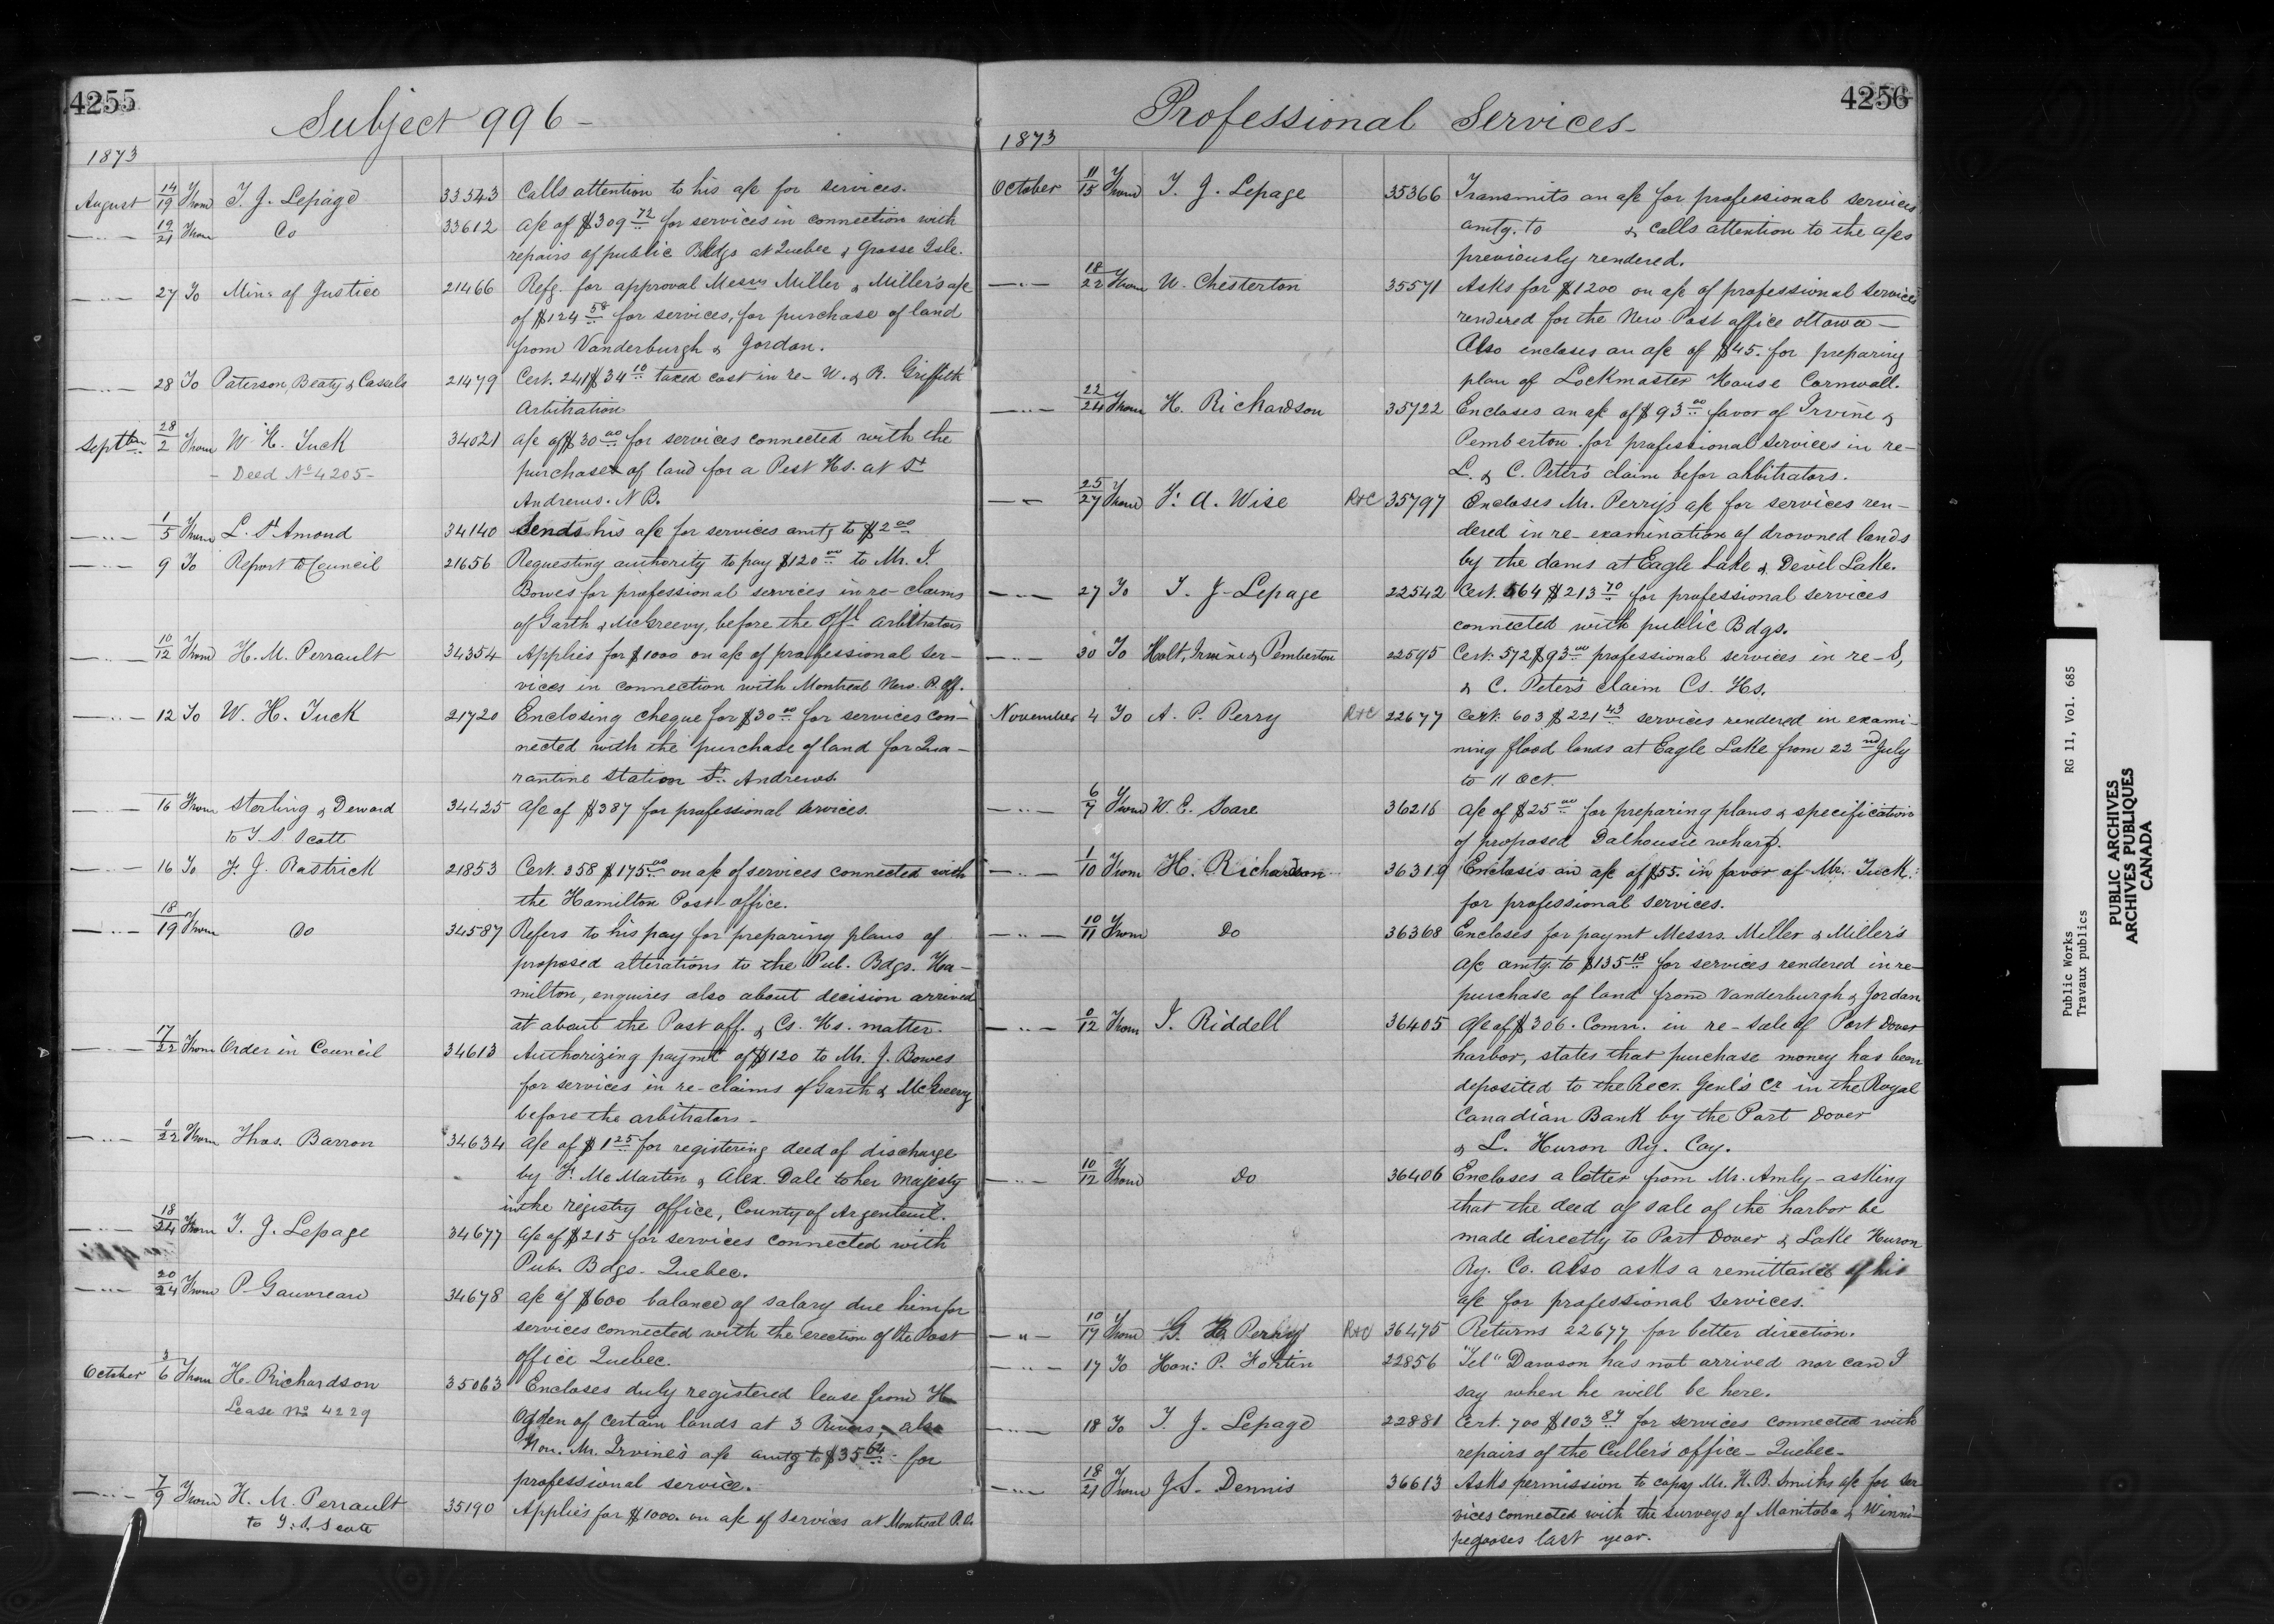 4255
Subject 996 -
1873
August 14/19 From T. J. Lepage 33543 Calls attention to his a/c for services.
— " — 19/21 From Do 33612 a/c of $309 72 for services in connection with
repairs of public Bldgs at Quebec & Grosse Isle.
— " — 27 To Min: of Justice 21466 Refg. for approval Messrs Miller & Miller's a/c
of $124 58 for services, for purchase of land
from Vanderburgh & Jordan.
— " — 28 To Paterson, Beaty & Cassels 21479 Cert. 241 $34 10 taxed cost in re- W. & R. Griffith
Arbitration
Septber. 28/2 From W. H. Tuck 34021 a/c of $30 00 for services connected with the
- Deed No 4205 - purchase of land for a Pest Hs. at St
Andrews. N B.
— " — 1/5 From L. St Amond 34140 Sends his a/c for services amtg to $2 00
— " — 9 To Report to Council 21656 Requesting authority to pay $120 00 to Mr. J.
Bowes for professional services in re- claims
of Garth & McGreevy, before the Offl. Arbitrators
— " — 10/12 From H. M. Perrault 34354 Applies for $1000 on a/c of professional ser-
vices in connection with Montreal New. P. Off.
— " — 12 To W. H. Tuck 21720 Enclosing cheque for $30 00 for services con-
nected with the purchase of land for Qua-
rantine Station St. Andrews.
— " — 16 From Sterling & Deward 34425 a/c of $387 for professional services.
to T. S. Scott
— " — 16 To F. J. Rastrick 21853 Cert. 358 $175 00 on a/c of services connected with
the Hamilton Post-office.
— " — 18/19 From Do 34587 Refers to his pay for preparing plans of
proposed alterations to the Pub. Bdgs. Ha-
milton, enquires also about decision arrived
at about the Post off. & Cs. Hs. matter.
— " — 17/22 From Order in Council 34613 Authorizing paymt of $120 to Mr. J. Bowes
for services in re-claims of Garth & McGreevy
before the arbitrators -
— " — 0/22 From Thos. Barron 34634 a/c of $1 25 for registering deed of discharge
by F. McMartin & Alex. Dale to her Majesty
in the registry office, County of Argenteuil.
— " — 18/24 From T. J. Lepage 34677 a/c of $215 for services connected with
Pub. Bdgs. Quebec.
— " — 20/24 From P. Gauvreau 34678 a/c of $600 balance of salary due him for
services connected with the erection of the Post
office Quebec.
October 3/6 From H. Richardson 35063 Encloses duly registered lease from H
Lease No 4229 Ogden of certain lands at 3 Rivers, also
Hon. Mr. Irvine's a/c amtg to $35 64 for
professional service.
— " — 7/9 From H. M. Perrault 35190 Applies for $1000. on a/c of services at Montreal P.O.
to T. S. Scott
4256
Professional Services -
1873
October 11/15 From T. J. Lepage 35366 Transmits an a/c for professional services
amtg. to & calls attention to the a/cs
previously rendered.
— " — 18/22 From W. Chesterton 35571 Asks for $1200 on a/c of professional services
rendered for the New Post office Ottawa -
Also encloses an a/c of $45. for preparing
plan of Lockmaster House Cornwall.
— " — 22/24 From H. Richardson 35722 Encloses an a/c of $93 00 favor of Irvine &
Pemberton for professional services in re-
L. & C. Peter's claim befor arbitrators.
— " — 25/27 From F. A. Wise R&C 35797 Encloses Mr. Perry's a/c for services ren-
dered in re- examination of drowned lands
by the dams at Eagle Lake & Devil Lake.
— " — 27 To T. J. Lepage 22542 Cert. 564 $213 70 for professional services
connected with public Bdgs.
— " — 30 To Holt, Irvine & Pemberton 22595 Cert. 572 $93 00 professional services in re- S,
& C. Peter's claim Cs. Hs.
November 4 To A. P. Perry R&C 22677 Cert. 603 $221 43 services rendered in exami-
ning flood lands at Eagle Lake from 22nd July
to 11 Oct.
— " — 6/7 From W. E. Soare 36216 a/c of $25 00 for preparing plans & specification
of proposed Dalhousie wharf.
— " — 1/10 From H. Richardson 36319 Encloses an a/c of $55. in favor of Mr. Tuck.
for professional services.
— " — 10/11 From Do 36368 Encloses for paymt Messrs. Miller & Miller's
a/c amtg. to $135 18 for services rendered in re-
purchase of land from Vanderburgh & Jordan
— " — 0/12 From T. Riddell 36405 a/c of $306. Comn. in re- sale of Port Dover
harbor, states that purchase money has been
deposited to the Recr. Genl's Cr in the Royal
Canadian Bank by the Port Dover
& L. Huron Ry. Coy.
— " — 10/12 From Do 36406 Encloses a letter from Mr. Amly - asking
that the deed of sale of the harbor be
made directly to Port Dover & Lake Huron
Ry. Co. Also asks a remittance of his
a/c for professional services.
— " — 10/17 From Perry R&C 36475 Returns 22677 for better direction.
— " — 17 To Hon: P. Fortin 22856 "Tel" Dawson has not arrived nor can I
say when he will be here.
— " — 18 To T. J. Lepage 22881 Cert. 700 $103 87 for services connected with
repairs of the Culler's office - Quebec.
— " — 18/21 From J. S. Dennis 36613 Asks permission to copy Mr. H. B. Smith's a/c for ser
vices connected with the surveys of Manitoba & Winni-
pegooses last year.
Public Works RG 11, Vol. 685
Travaux publics
PUBLIC ARCHIVES
ARCHIVES PUBLIQUES
CANADA